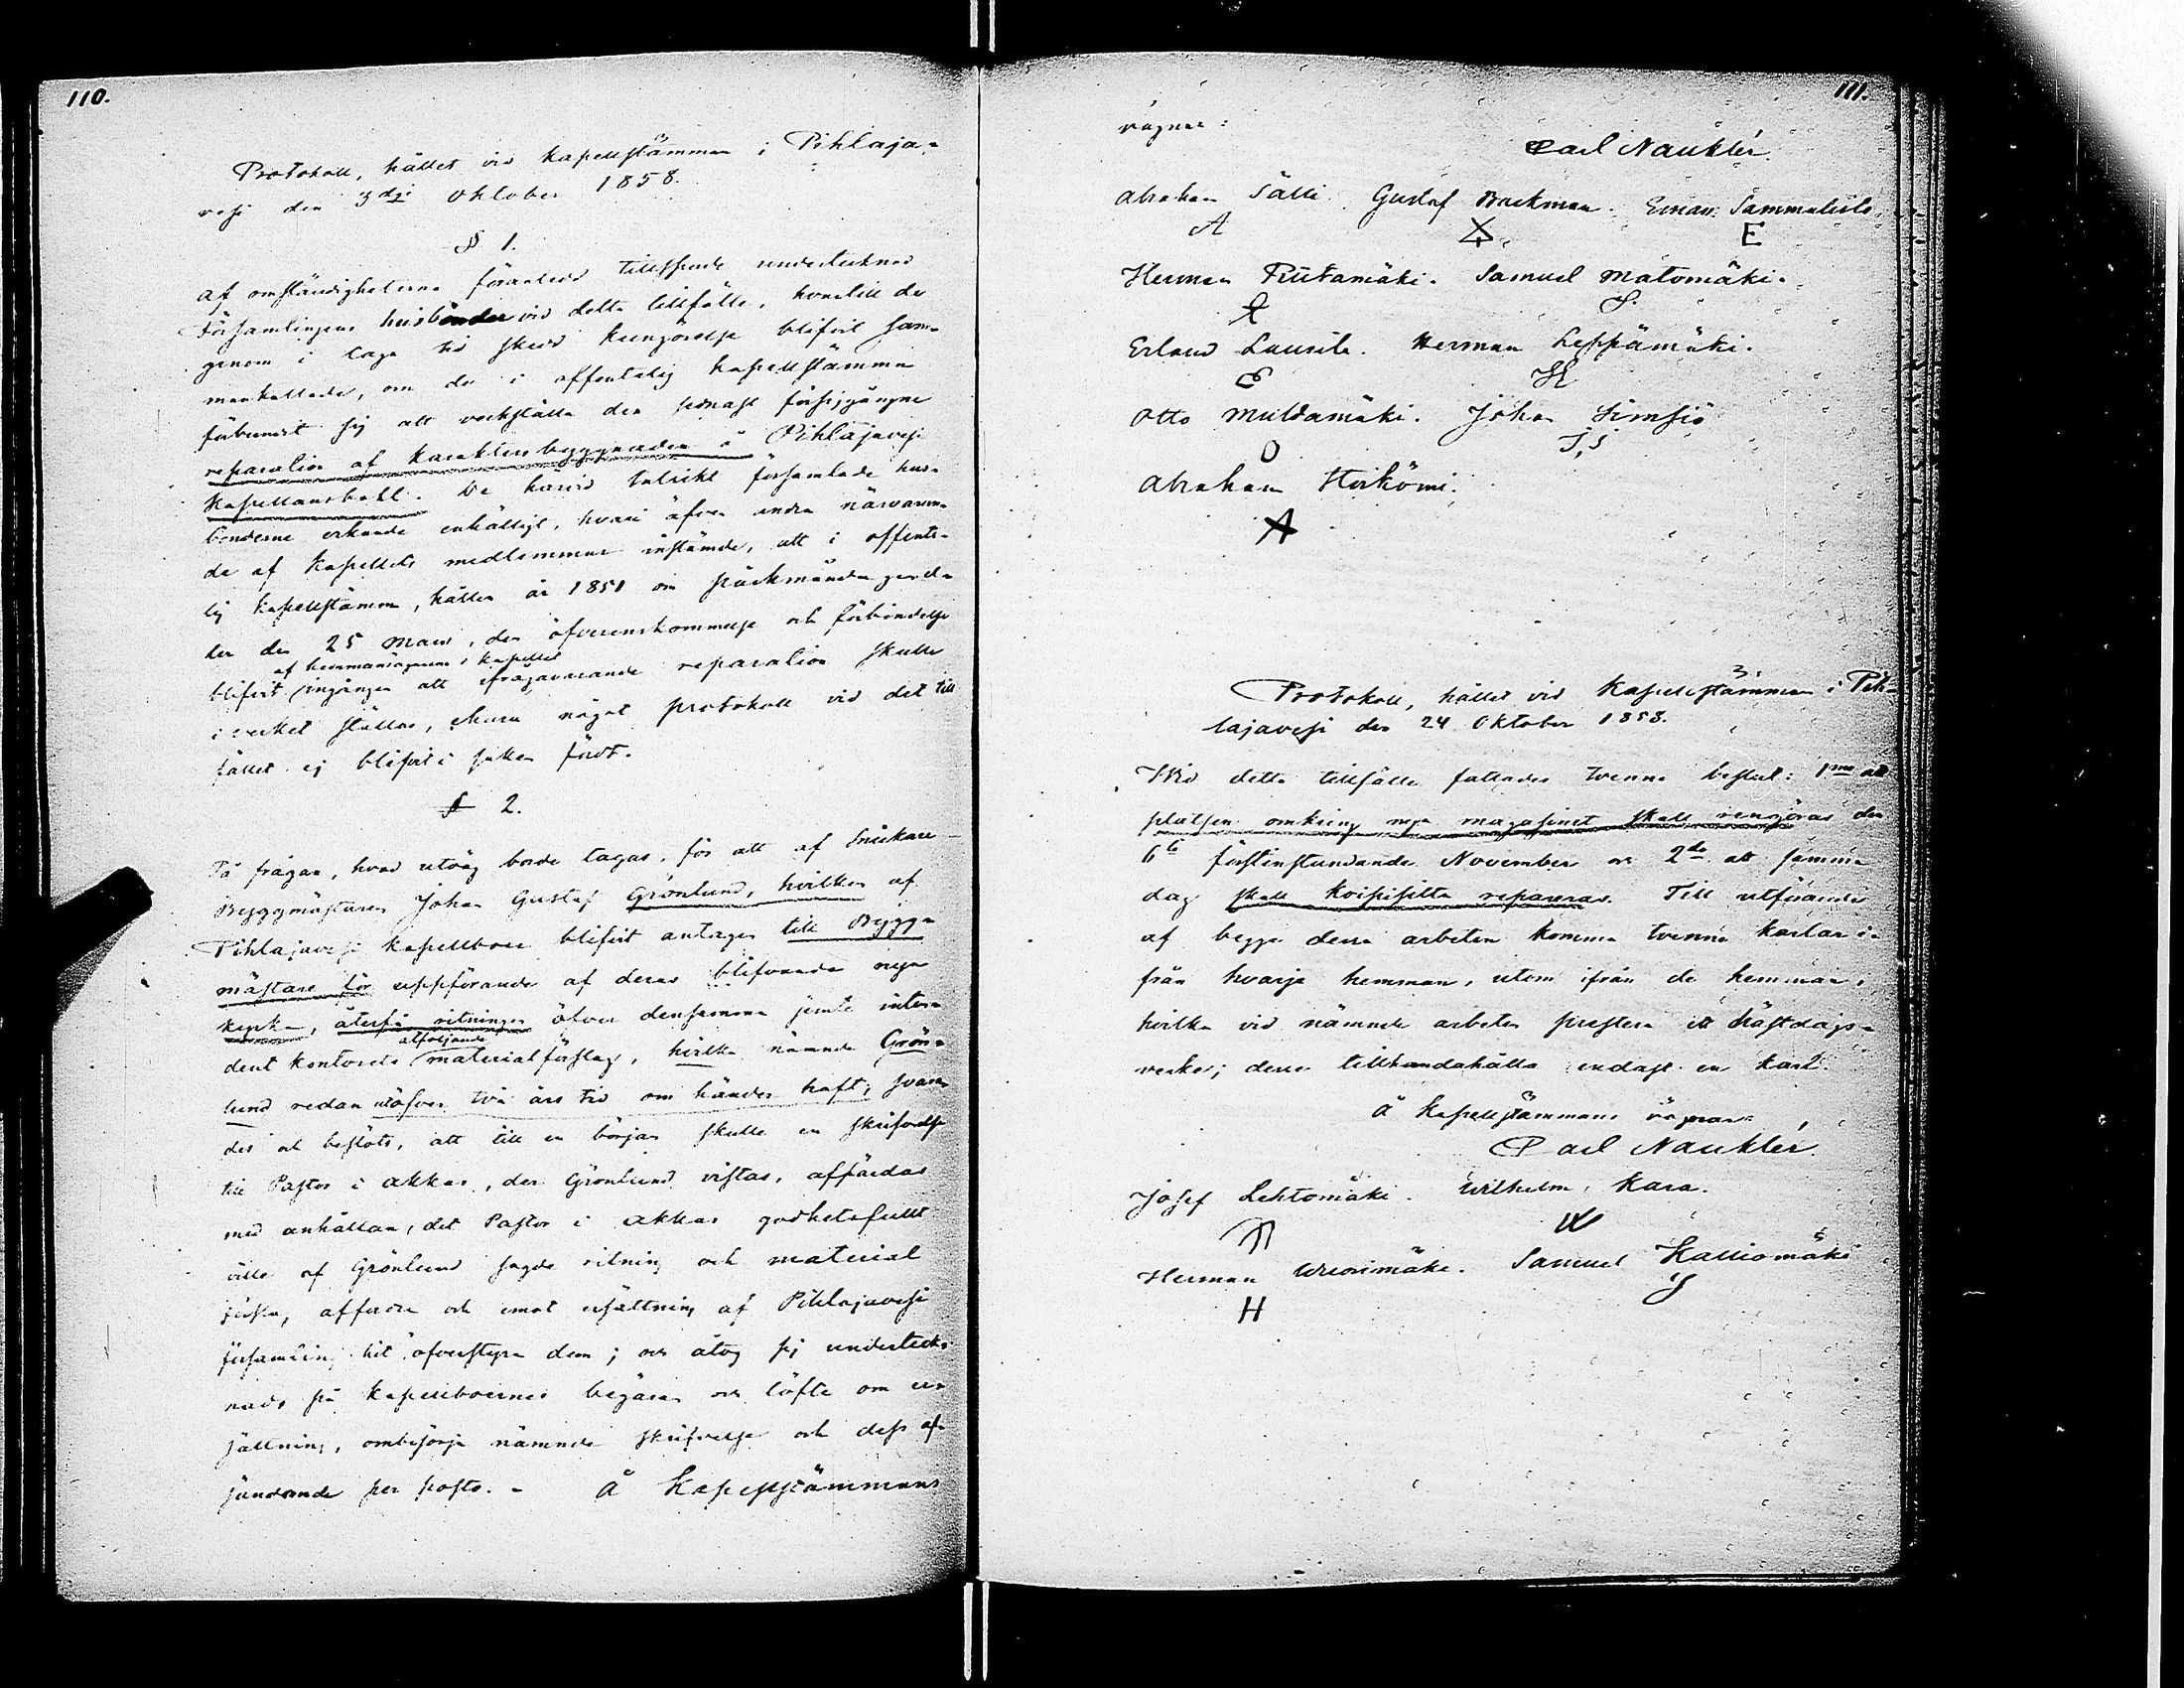 110.
Protokoll, hållet vid kapellstämman i Pihlaja-
vesi den 3dje Oktober 1858.
§ 1.
Af omständigheterna föranledd tillsporde undertecknad
Församlingens husbönder vid detta tillfälle, hvartill de
genom i laga tid skedd kungörelse blifvit sam-
mankallade, om de i offentelig kapellstämma
förbundit sig att verkställa den senast försiggångne
reparation af karaktersbyggnaden å Pihlajavesi
Kapellansbohl. De härvid talrikt församlade hus-
bönderne erkände enhälligt, hvari äfven andra närvaran-
de af kapellets medlemmar instämde, att i offente-
lig kapellstämma, hållen år 1851 om
der den 25 Mars, den öfverenskommelse och förbindelse
af hemmansägarene i kapellet
blifvit ingången att ifrågavarande reparation skulle
i verket ställas, ehuru något protokoll vid det till
fället ej blifvit i saken fördt.
§ 2.
På frågan, hvad utväg borde tagas, för att af Snickare
Byggmästaren Johan Gustaf Grönlund, hvilken af
Pihlajavesi kapellboer blifvit antagen till Bygg-
mästare för uppförande af deras blifvande nya
kyrka, återfå ritningen öfver densamma jemte inten-
atföljande
dent kontorets materialförslag, hvilka nämnde Grön-
lund redan utöfver två års tid om händer haft, svara-
des och beslöts, att till en början skulle en skrifvelse
till Pastor i Akkas, der Grönlund vistas, affärdas
med anhållan, det Pastor i Akkas godhetsfullt
ville af Grönlund sagde ritning och material
förslag, affordra och emot ersättning af Pihlajavesi
församling hit öfverstyra dem; och åtog sig underteck-
nad, på kapellboernes begäran och löfte om er-
sättning, ombesörja nämnde skrifvelse och dess af-
sändande per posto. - Å Kapellstämmans
111.
vägnar:
Carl Naukler.
Abraham Sälli. Gustaf Backman. Eman: Sammalisto.
A E
Herman Riitamäki. Samuel Matomäki.
S.
Erland Laurila. Herman Leppämäki.
E H
Otto Multamäki. Johan Simsiö
O J,S
Abraham Hirkömi.
A
Protokoll, hållet vid Kapellstämman i Pih-
lajavesi den 24 Oktober 1858.
Wid detta tillfälle fattades tvenne beslut: 1mo att
platsen omkring nya magasinet skall rengöras den
6te förstinstundande November och 2do att samma
dag skall koipisilta repareras. Till utförande
af begge dessa arbeten komma tvenne karlar i-
från hvarje hemman, utom ifrån de hemman,
hvilka vid nämnde arbeten prestera ett hästdags-
verke; dessa tillhandahålla endast en karl.
Å Kapellstämmans vägnar:
Carl Naukler.
Josef Lehtomäki. Wilhelm Kara.
W
Herman Wuorimäki. Samuel Kalliomäki
H S